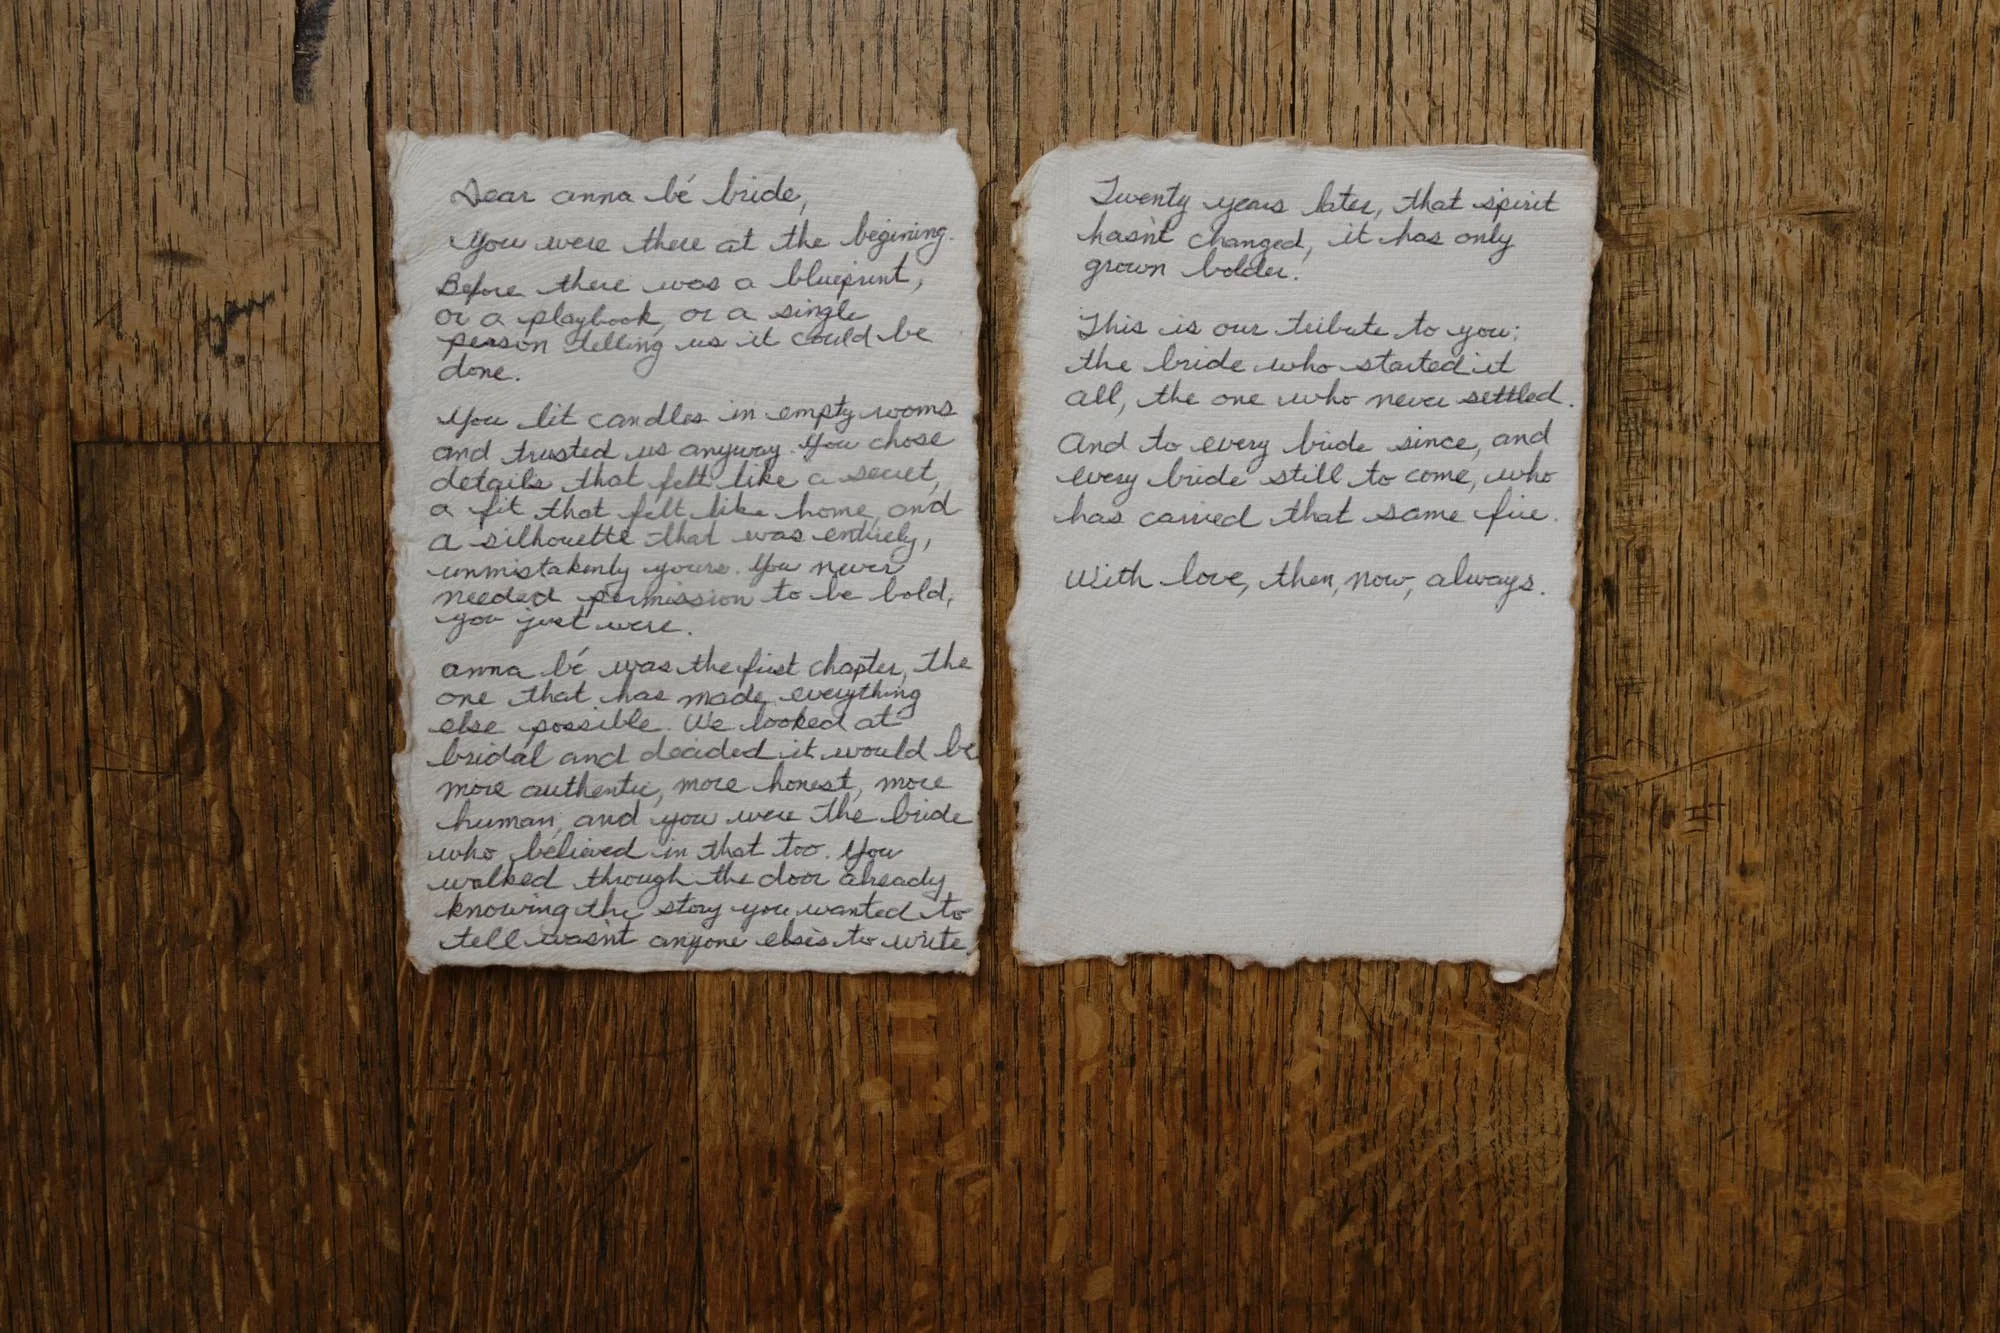 Dear anna bé bride,
You were there at the begining.
Before there was a blueprint,
or a playbook, or a single
person telling us it could be
done.
You lit candles in empty rooms
and trusted us anyway. You chose
details that felt like a secret,
a fit that felt like home, and
a silhouette that was entirely,
unmistakenly yours. You never
needed permission to be bold,
you just were.
anna bé was the first chapter, the
one that has made everything
else possible. We looked at
bridal and decided it would be
more authentic, more honest, more
human, and you were the bride
who believed in that too. You
walked through the door already
knowing the story you wanted to
tell wasn't anyone else's to write.
Twenty years later, that spirit
hasn't changed, it has only
grown bolder.
This is our tribute to you:
the bride who started it
all, the one who never settled.
And to every bride since, and
every bride still to come, who
has carried that same fire.
With love, then, now, always.